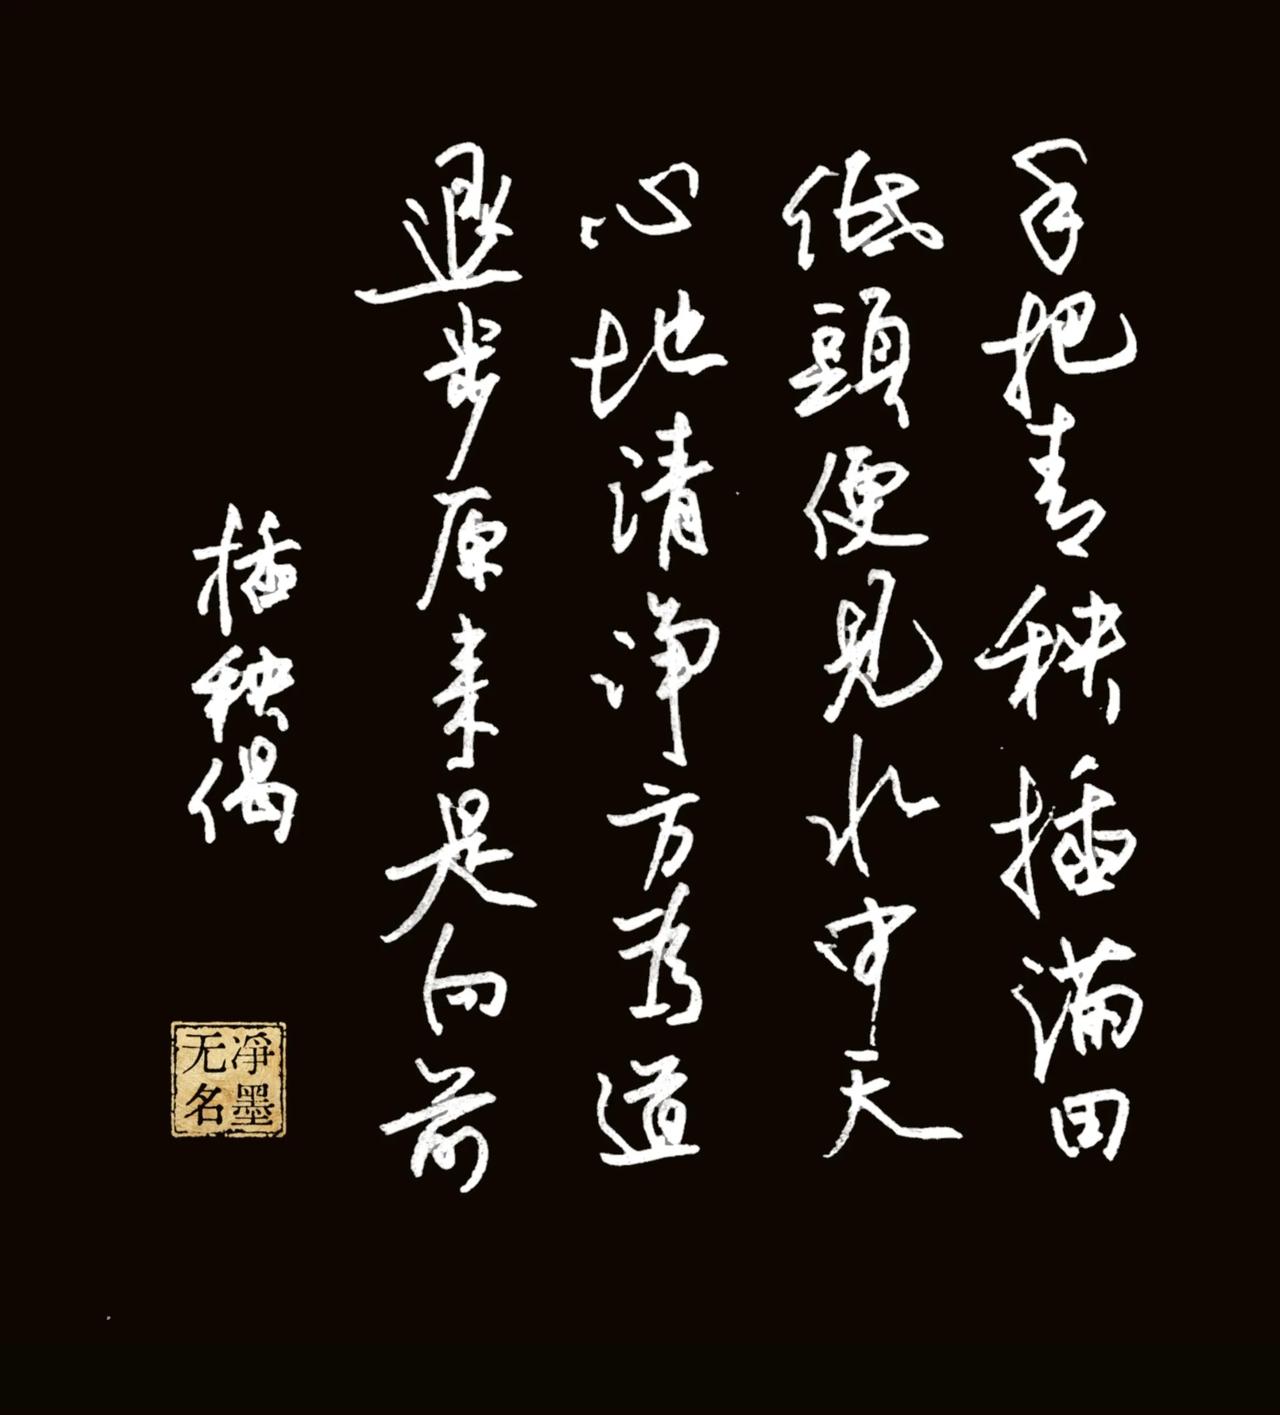 手把青秧插满田
低頭便見水中天
心地清净方為道
退步原来是向前
插秧偈
净墨
无名